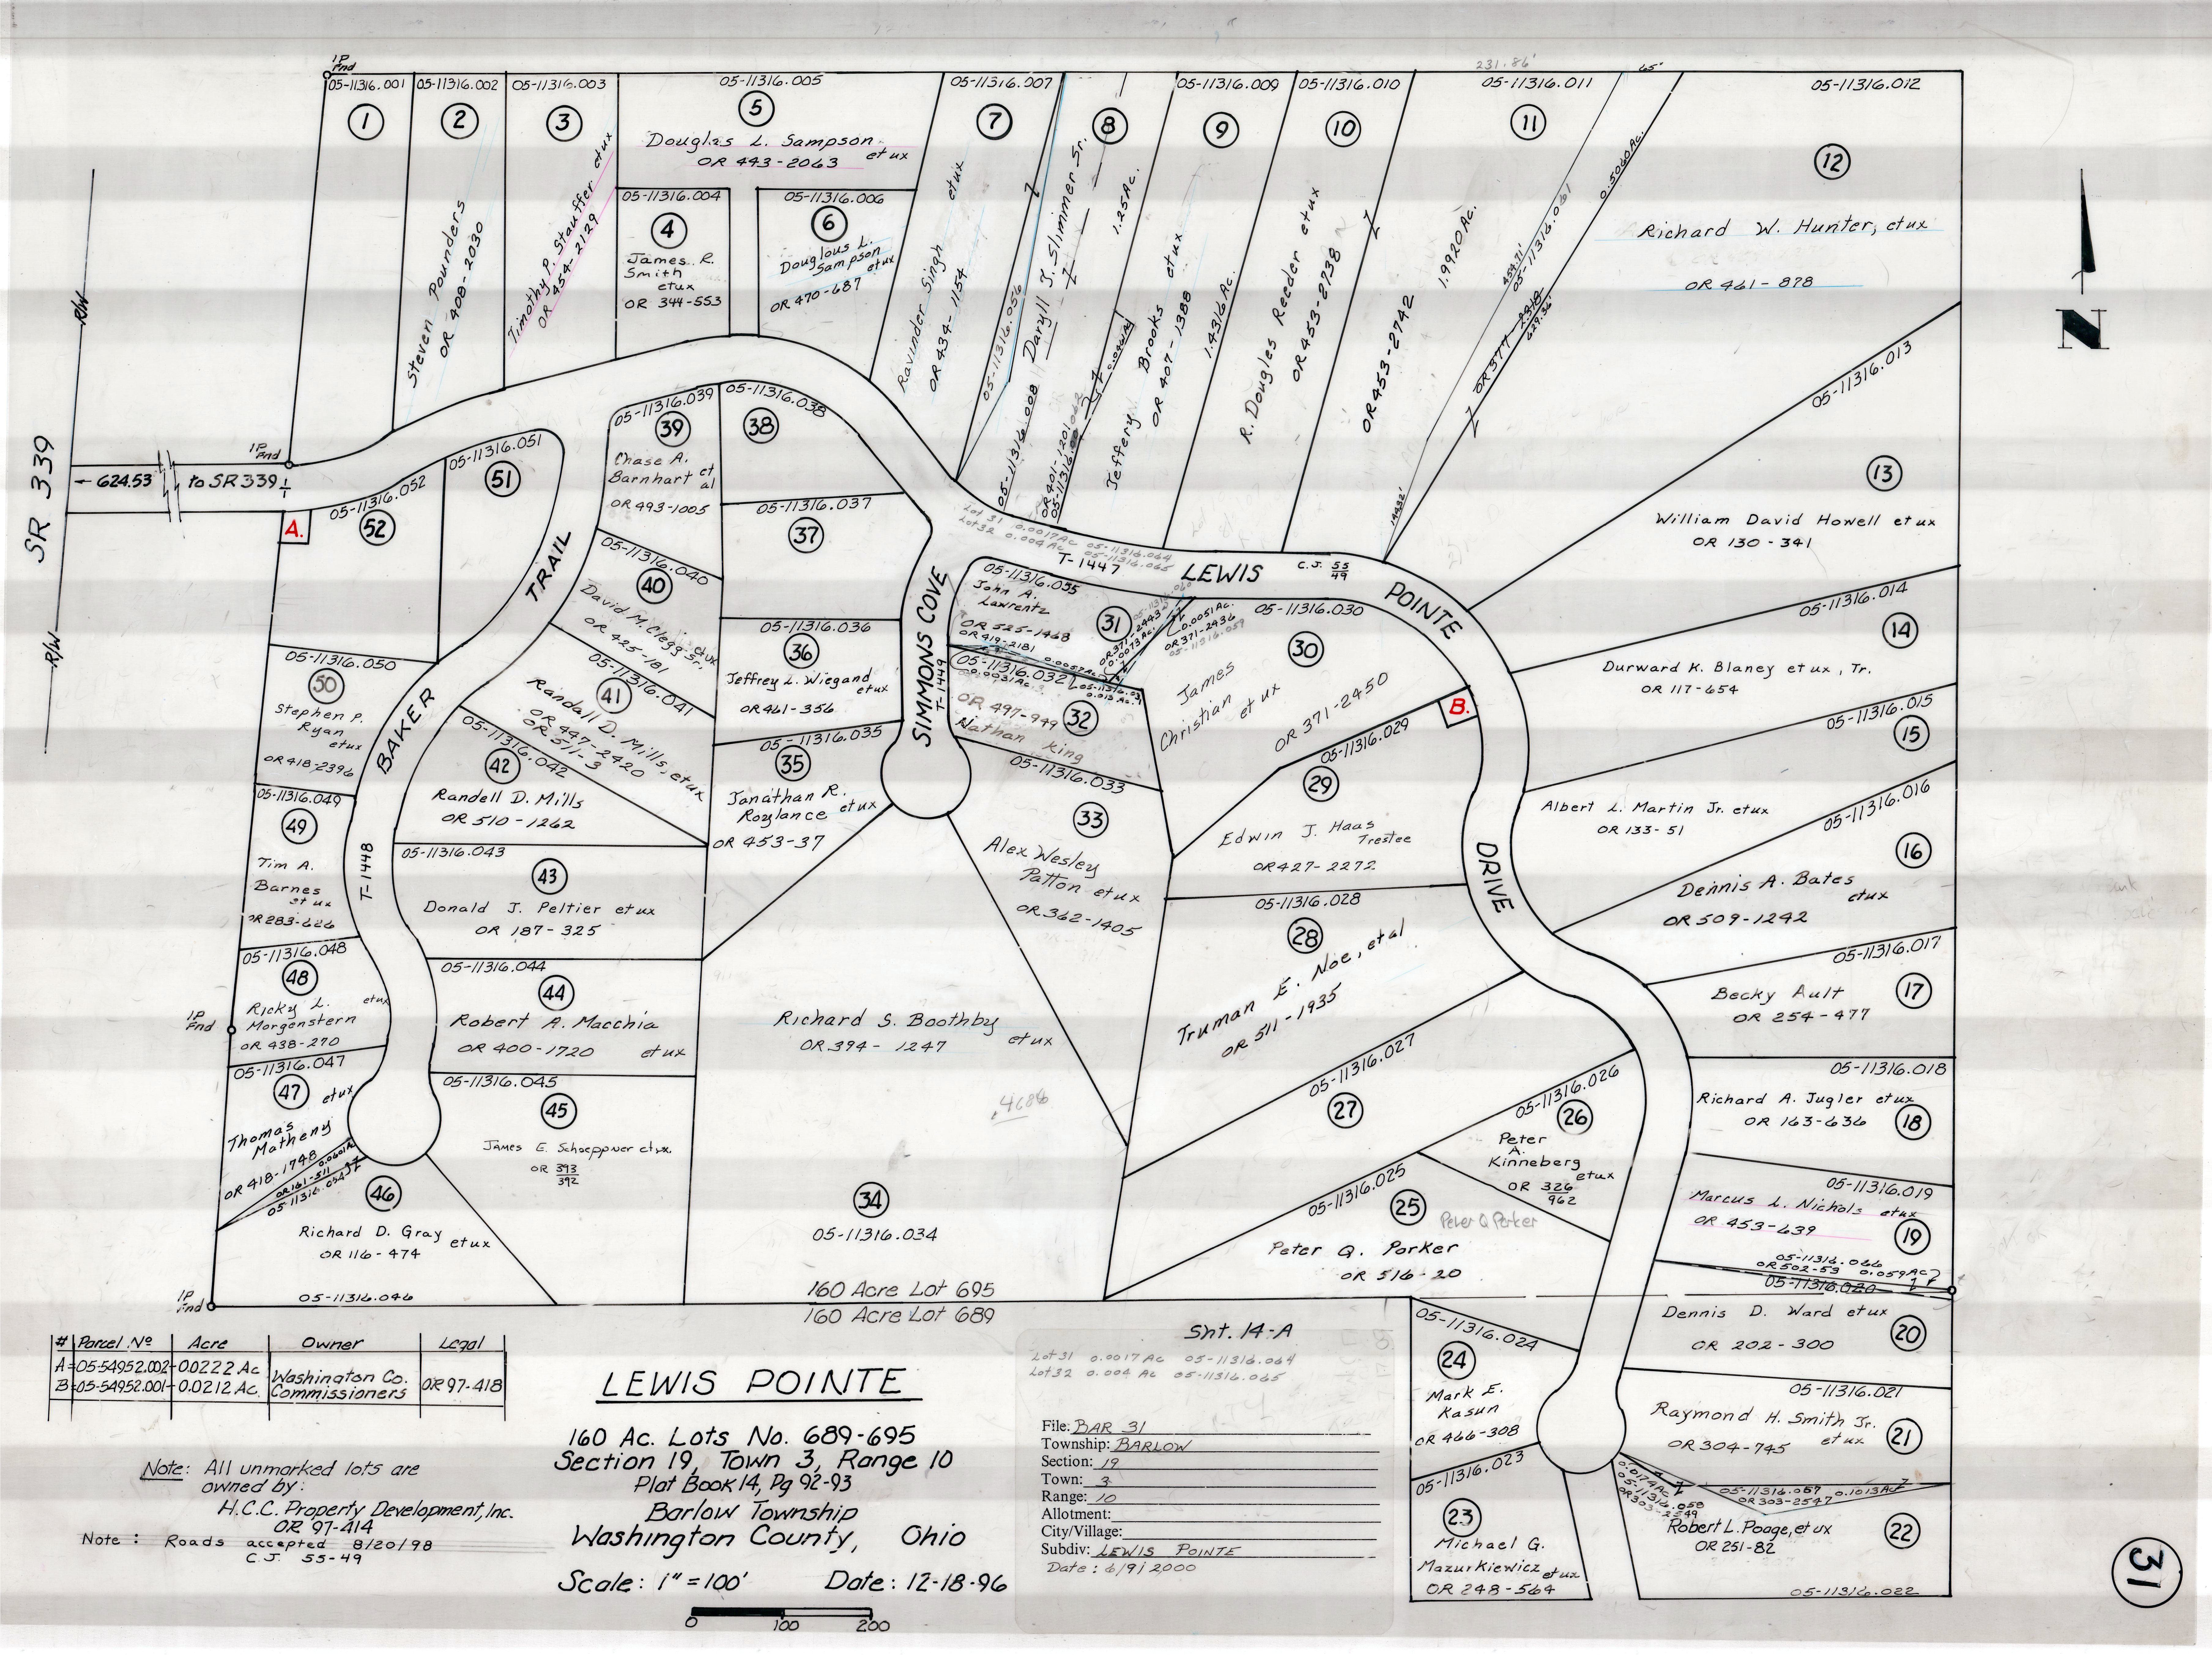 231.86'
65'
IP
Fnd
05-11316.001
1
05-11316.002
2
Steven Pounders
OR 408-2030
05-11316.003
3
Timothy P. Stauffer et ux
OR 454-2129
05-11316.005
5
Douglas L. Sampson
et ux
OR 443-2063
05-11316.004
4
James R.
Smith
et ux
OR 344-553
05-11316.006
6
Douglous L.
Sampson
et ux
OR 470-687
05-11316.007
7
Ravinder Singh et ux
OR 434-1154
05-11316.056
8
Daryll J. Slimmer Sr.
05-11316.008
1.25 Ac.
OR 401-1201
05-11316.009
9
Jeffery Brooks et ux
OR 407-1388
1.4316 Ac.
05-11316.010
10
R. Dougles Reeder et ux
OR 453-2738
05-11316.011
11
OR 453-2742
1.9920 Ac.
454.71'
05-11316.061
0.5060 Ac.
OR 377-2318
629.36'
144.32'
05-11316.012
12
Richard W. Hunter, et ux
OR 461-878
N
05-11316.013
13
William David Howell et ux
OR 130-341
05-11316.014
14
Durward K. Blaney et ux, Tr.
OR 117-654
05-11316.015
15
Albert L. Martin Jr. et ux
OR 133-51
05-11316.016
16
Dennis A. Bates
et ux
OR 509-1242
05-11316.017
17
Becky Ault
OR 254-477
05-11316.018
Richard A. Jugler et ux
18
OR 163-636
05-11316.019
Marcus L. Nichols et ux
OR 453-639
19
05-11316.066
OR 502-53 0.059 AC
05-11316.020
Dennis D. Ward et ux
20
OR 202-300
05-11316.021
Raymond H. Smith Jr.
et ux
OR 304-745
21
0.017 AC
05-11316.058
OR 303-2549
05-11316.057 0.1013 Ac
OR 303-2547
Robert L. Poage, et ux
OR 251-82
22
05-11316.022
R/W
SR 339
R/W
← 624.53 to SR 339
IP
Fnd
A.
05-11316.052
52
05-11316.051
51
05-11316.050
50
Stephen P.
Ryan
et ux
OR 418-2396
05-11316.049
49
Tim A.
Barnes
et ux
OR 283-626
05-11316.048
48
Ricky L. et ux
Morgenstern
OR 438-270
IP
Fnd
05-11316.047
47
et ux
Thomas
Matheny
OR 418-1748
0.0601 Ac
OR 161-511
05-11316.054
46
Richard D. Gray et ux
OR 116-474
05-11316.046
IP
Fnd
BAKER TRAIL
T-1448
05-11316.039
39
Chase A.
Barnhart et al
OR 493-1005
05-11316.038
38
05-11316.037
37
05-11316.040
40
David M. Clegg Sr. et ux
OR 425-181
05-11316.041
41
Randall D. Mills, et ux
OR 447-2420
OR 511-3
05-11316.042
42
Randell D. Mills
OR 510-1262
05-11316.043
43
Donald J. Peltier et ux
OR 187-325
05-11316.044
44
Robert A. Macchia
OR 400-1720 et ux
05-11316.045
45
James E. Schoeppner et ux.
OR 393
392
05-11316.036
36
Jeffrey L. Wiegand
et ux
OR 461-356
05-11316.035
35
Jonathan R.
Roylance et ux
OR 453-37
SIMMONS COVE
T-1449
Lot 31 0.0017 Ac 05-11316.064
Lot 32 0.004 Ac 05-11316.065
T-1447
LEWIS
C.J. 55
49
POINTE
DRIVE
05-11316.055
John A.
Lawrentz
OR 525-1468
OR 419-2181
31
OR 371-2443
0.0073 Ac.
0.0051 Ac.
OR 371-2436
05-11316.059
05-11316.032
32
OR 497-949
Nathan King
05-11316.030
30
James
Christian
et ux
OR 371-2450
B.
05-11316.029
29
Edwin J. Haas
Trestee
OR 427-2272
05-11316.033
33
Alex Wesley
Patton et ux
OR 362-1405
05-11316.028
28
Truman E. Noe, et al
OR 511-1935
05-11316.027
27
05-11316.026
26
Peter
A.
Kinneberg
et ux
OR 326
962
05-11316.025
25
Peter Q Parker
Peter Q. Parker
OR 516-20
Richard S. Boothby
et ux
OR 394-1247
.4686
34
05-11316.034
160 Acre Lot 695
160 Acre Lot 689
05-11316.024
24
Mark E.
Kasun
OR 466-308
05-11316.023
23
Michael G.
Mazurkiewicz et ux
OR 248-564
# Parcel No Acre Owner Legal
A 05-54952.002 0.0222 Ac Washington Co. Commissioners OR 97-418
B 05-54952.001 0.0212 Ac.
Note: All unmarked lots are
owned by:
H.C.C. Property Development, Inc.
OR 97-414
Note: Roads accepted 8/20/98
C.J. 55-49
LEWIS POINTE
160 Ac. Lots No. 689-695
Section 19, Town 3, Range 10
Plat Book 14, Pg 92-93
Barlow Township
Washington County, Ohio
Scale: 1" = 100' Date: 12-18-96
0 100 200
Sht. 14-A
Lot 31 0.0017 Ac 05-11316.064
Lot 32 0.004 Ac 05-11316.065
File: BAR 31
Township: BARLOW
Section: 19
Town: 3
Range: 10
Allotment:
City/Village:
Subdiv: LEWIS POINTE
Date: 6/9/2000
31